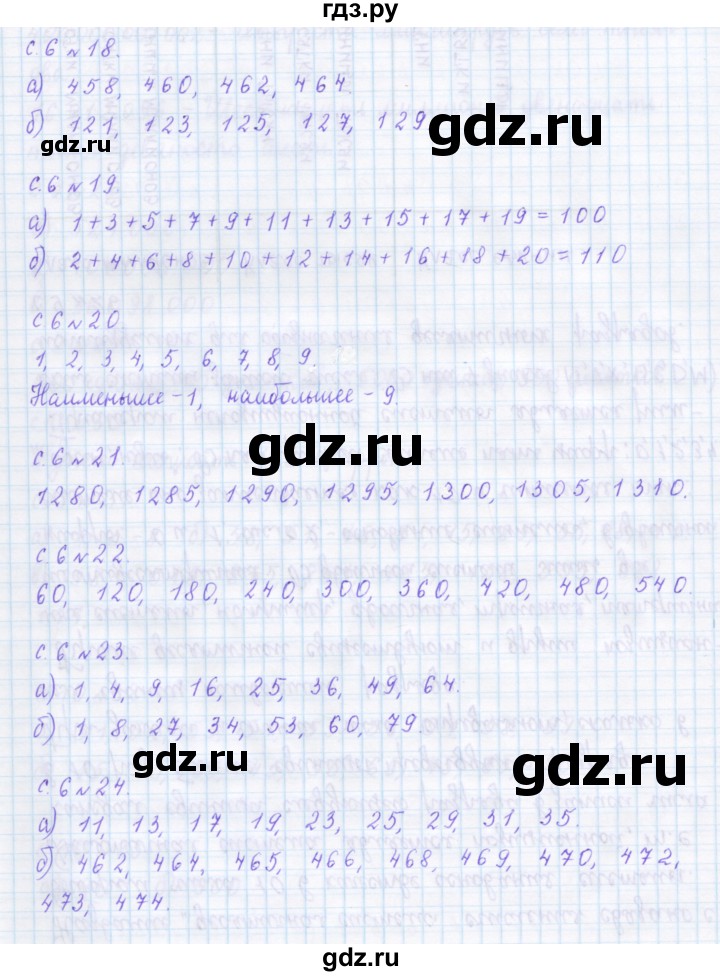 гдз.ру
с.6 №18.
а) 458, 460, 462, 464.
б) 121, 123, 125, 127, 129
gdz.ru
gdz.ru
с.6 №19.
а) 1+3+5+7+9+11+13+15+17+19=100
б) 2+4+6+8+10+12+14+16+18+20=110
с6 №20.
1, 2, 3, 4, 5, 6, 7, 8, 9.
Наименьшее-1, наибольшее-9.
gdz.ru
с.6 №21.
gdz.ru
1280, 1285, 1290, 1295, 1300, 1305, 1310.
с.6 №22.
60, 120, 180, 240, 300, 360, 420, 480, 540.
с.6 №23.
а) 1, 4, 9, 16, 25, 36, 49, 64.
б) 1, 8, 27, 34, 53, 60, 79.
gdz.ru
gdz.ru
с.6 №24.
а) 11, 13, 17, 19, 23, 25, 29, 31, 35.
б) 462, 464, 465, 466, 468, 469, 470, 472,
473, 474.
gdz.ru